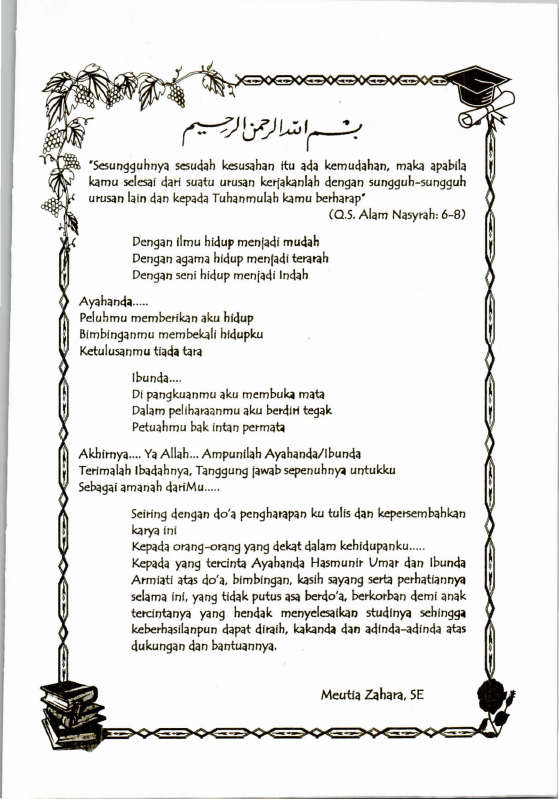 بسم الله الرحمن الرحيم
"Sesungguhnya sesudah kesusahan itu ada kemudahan, maka apabila
kamu selesai dari suatu urusan kerjakanlah dengan sungguh-sungguh
urusan lain dan kepada Tuhanmulah kamu berharap"
(Q.S. Alam Nasyrah: 6-8)
Dengan ilmu hidup menjadi mudah
Dengan agama hidup menjadi terarah
Dengan seni hidup menjadi Indah
Ayahanda.....
Peluhmu memberikan aku hidup
Bimbinganmu membekali hidupku
Ketulusanmu tiada tara
Ibunda....
Di pangkuanmu aku membuka mata
Dalam peliharaanmu aku berdiri tegak
Petuahmu bak intan permata
Akhirnya.... Ya Allah... Ampunilah Ayahanda/Ibunda
Terimalah Ibadahnya, Tanggung jawab sepenuhnya untukku
Sebagai amanah dariMu.....
Seiring dengan do'a pengharapan ku tulis dan kepersembahkan
karya ini
Kepada orang-orang yang dekat dalam kehidupanku.....
Kepada yang tercinta Ayahanda Hasmunir Umar dan Ibunda
Armiati atas do'a, bimbingan, kasih sayang serta perhatiannya
selama ini, yang tidak putus asa berdo'a, berkorban demi anak
tercintanya yang hendak menyelesaikan studinya sehingga
keberhasilanpun dapat diraih, kakanda dan adinda-adinda atas
dukungan dan bantuannya.
Meutia Zahara, SE